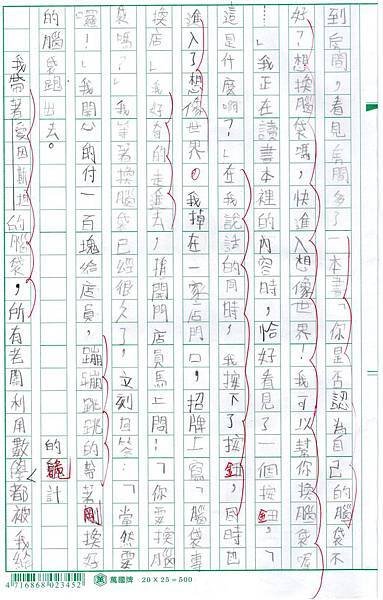 到房間，看見房間多了一本書「你是否認為自己的腦袋不
好？想換腦袋嗎，快進入想像世界！我可以幫你換腦袋喔
」我正在讀書本裡的內容時，恰好看見了一個按鈕，「
這是什麼啊？」在我說話的同時，我按下了按鈕，同時也
進入了想像世界。我掉在一家店門口，招牌上寫「腦袋專
換店」我好奇的走進去，推開門店員馬上問：「你要換腦
袋嗎？」我等著換腦袋已經很久了，立刻回答：「當然要
囉！」我開心的付一百塊給店員，蹦蹦跳跳的帶著剛換好
的腦袋跑出去。
的詭計
我帶著愛因斯坦的腦袋，所有老闆利用數學都被我給
4 716868 023452 萬國牌 20 X 25 = 500